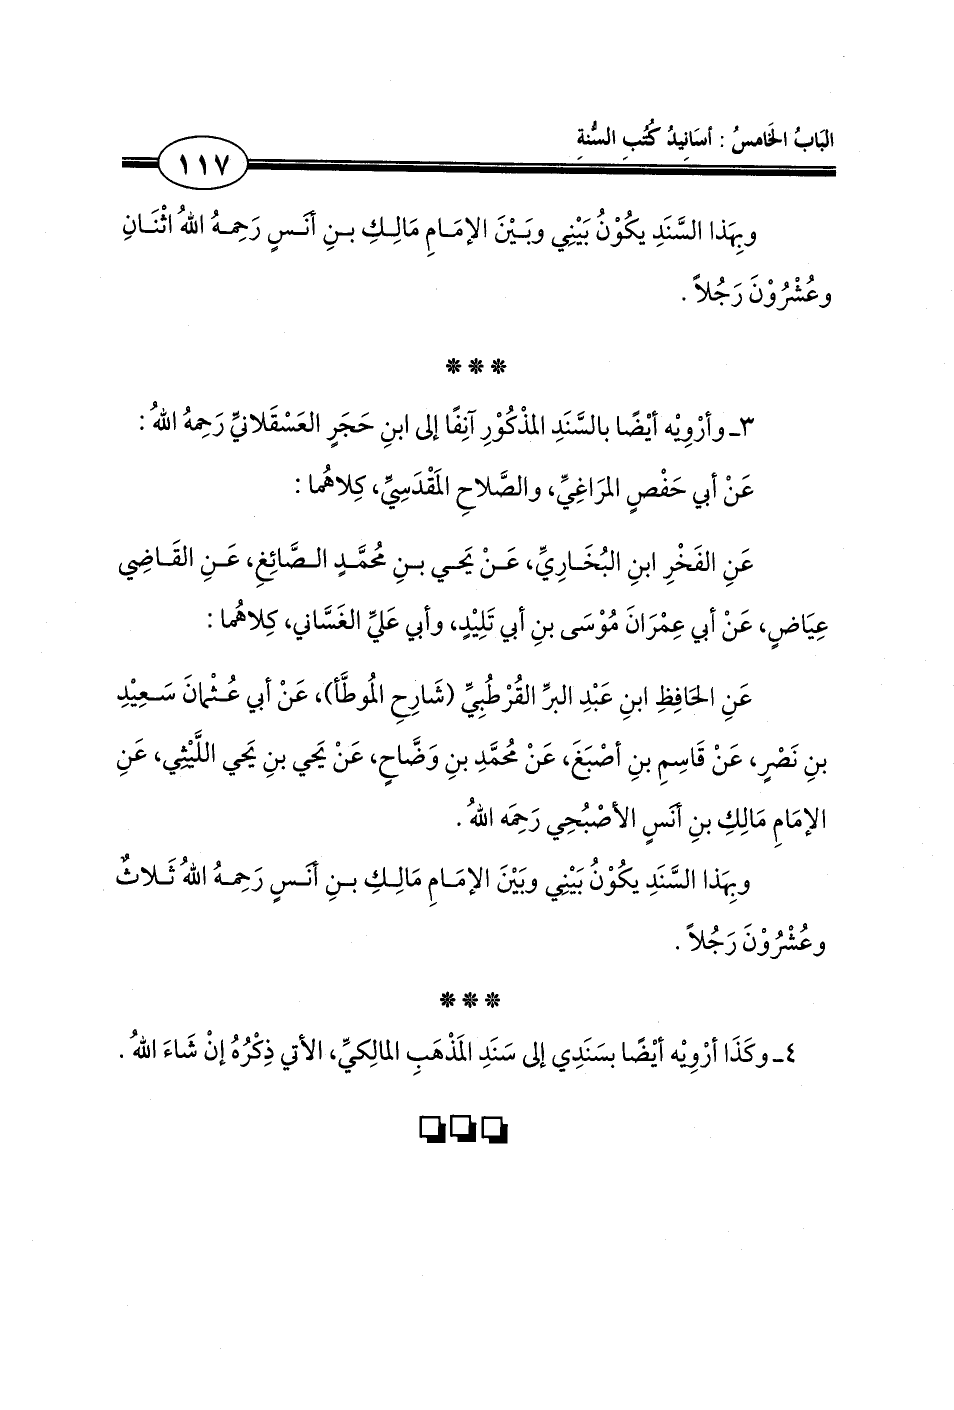 البَابُ الخَامسُ : أسَانِيدُ كُتُبِ السُّنةِ
١١٧
وبِهَذا السَّنَدِ يكُوْنُ بَيْنِي وبَيْنَ الإمَامِ مَالِكِ بنِ أنَسٍ رَحِمهُ اللهُ اثْنَانِ
وعُشْرُوْنَ رَجُلاً .
***
٣ـ وأرْوِيْه أيْضًا بالسَّنَدِ المَذْكُوْرِ آنِفًا إلى ابنِ حَجَرٍ العَسْقَلانيِّ رَحِمهُ اللهُ :
عَنْ أبي حَفْصٍ المرَاغِيِّ، والصَّلاحِ المَقْدَسِيِّ، كِلاهُما :
عَنِ الفَخْرِ ابنِ البُخَارِيِّ، عَنْ يَحي بنِ مُحمَّدٍ الصَّائِغِ، عَنِ القَاضِي
عِيَاضٍ، عَنْ أبي عِمْرَانَ مُوْسَى بنِ أبي تَلِيْدٍ، وأبي عَليٍّ الغَسَّاني، كِلاهُما :
عَنِ الحَافِظِ ابنِ عَبْدِ البرِّ القُرْطُبِيِّ (شَارِحِ المُوطَّأ)، عَنْ أبي عُثْمانَ سَعِيْدِ
بنِ نَصْرٍ، عَنْ قَاسِمِ بنِ أصْبَغَ، عَنْ مُحمَّدِ بنِ وَضَّاحٍ، عَنْ يَحي بنِ يَحي اللَّيْثِي، عَنِ
الإمَامِ مَالِكِ بنِ أنَسٍ الأصْبُحِي رَحِمَه اللهُ .
وبِهَذا السَّنَدِ يكُوْنُ بَيْنِي وبَيْنَ الإمَامِ مَالِكِ بنِ أنَسٍ رَحِمهُ اللهُ ثَلاثٌ
وعُشْرُوْنَ رَجُلاً .
***
٤ـ وكَذَا أرْوِيْه أيْضًا بسَنَدِي إلى سَنَدِ المَذْهَبِ المَالِكيِّ، الأتي ذِكْرُهُ إنْ شَاءَ اللهُ .